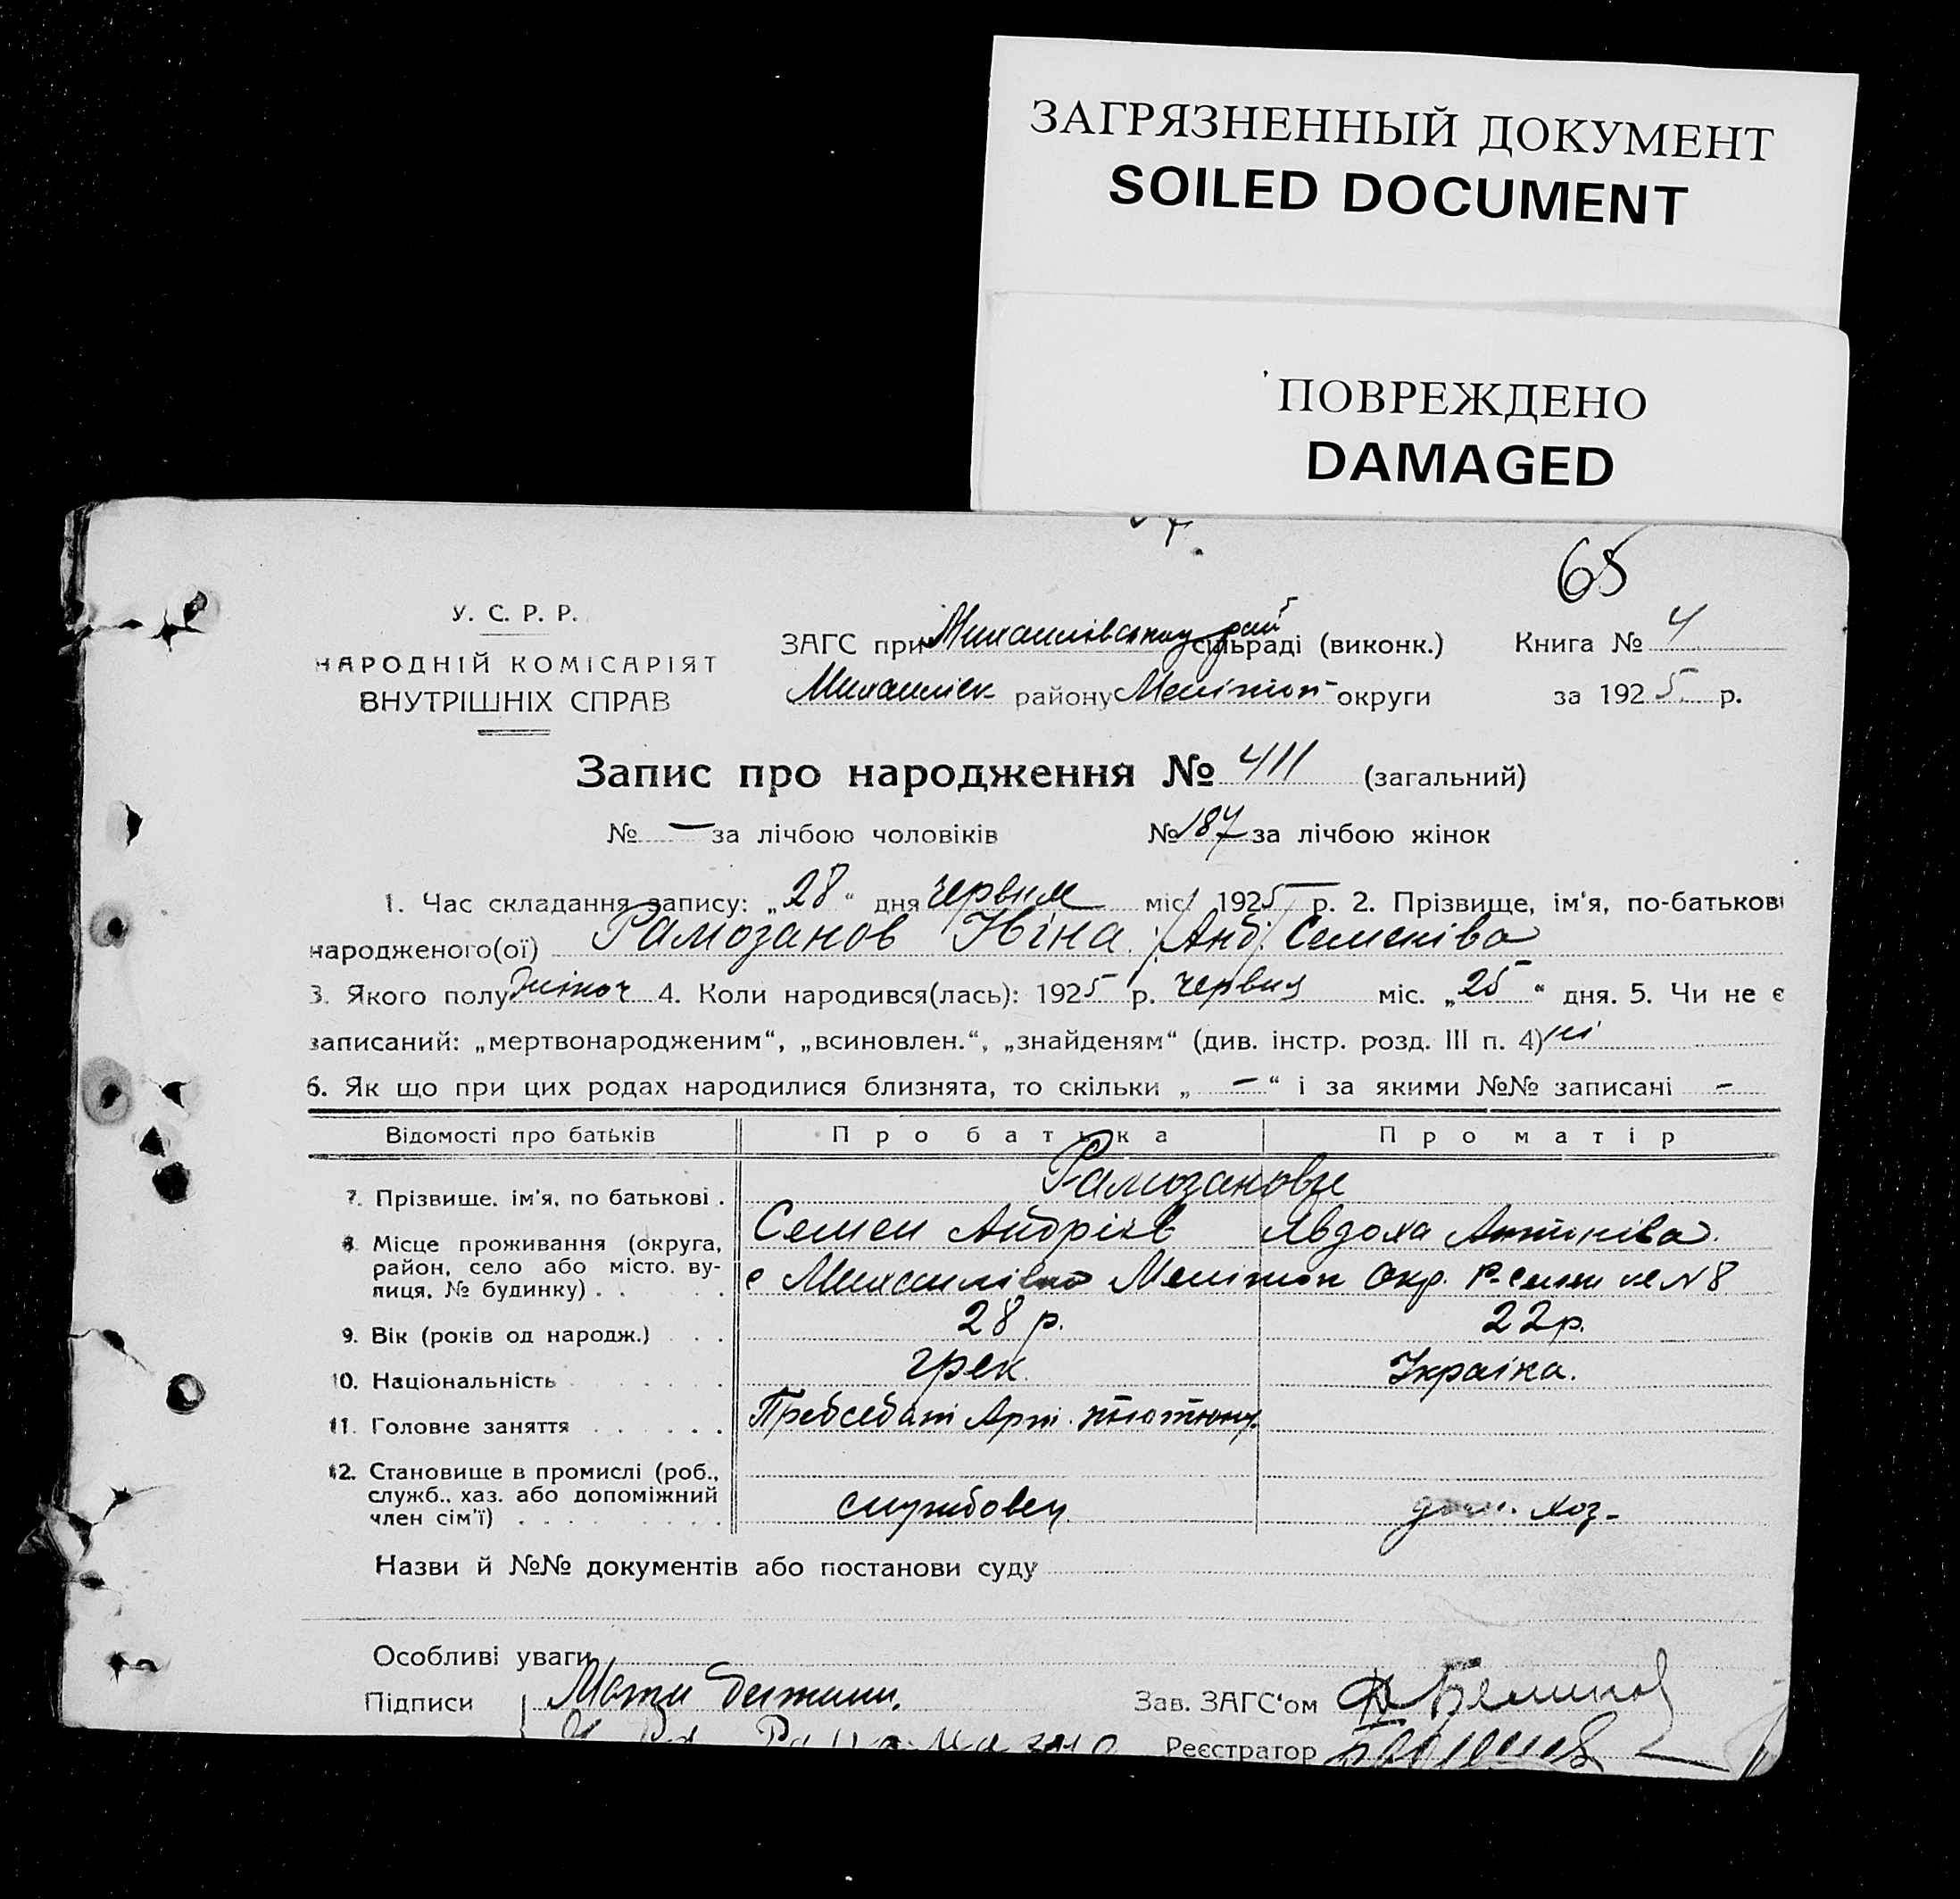 ЗАГРЯЗНЕННЫЙ ДОКУМЕНТ
SOILED DOCUMENT
ПОВРЕЖДЕНО
DAMAGED
65
У. С. Р. Р.
НАРОДНІЙ КОМІСАРІЯТ
ВНУТРІШНІХ СПРАВ
ЗАГС при Михайлівському рай сільраді (виконк.) Книга № 4
Михайлівск району Мелітоп- округи за 1925 р.
Запис про народження № 411 (загальний)
№ — за лічбою чоловіків № 187 за лічбою жінок
1. Час складання запису: „28“ дня червня міс. 1925 р. 2. Прізвище, ім'я, по-батькові
народженого(ої) Рамозанов Ніна Семеніва
3. Якого полу жіноч 4. Коли народився(лась): 1925 р. червня міс. „25“ дня. 5. Чи не є
записаний: „мертвонародженим“, „всиновлен.“, „знайденям“ (див. інстр. розд. III п. 4) ні
6. Як що при цих родах народилися близнята, то скільки „ — “ і за якими №№ записані —
Відомості про батьків Про батька Про матір
Рамозанови
7. Прізвище, ім'я, по батькові .
Семен Андріїв Явдоха Антонівна.
8. Місце проживання (округа,
район, село або місто, ву-
лиця, № будинку) . .
с Михайлівка Мелітоп Окр. № 8
9. Вік (років од народж.) . . . 28 р. 22 р.
10. Національність грек. Українка.
11. Головне заняття Председат Арт. тютюну.
12. Становище в промислі (роб.,
служб., хаз. або допоміжний
член сім'ї) службовец. дом. хоз-
Назви й №№ документів або постанови суду
Особливі уваги
Підписи Мати дитини. Зав. ЗАГС'ом
Реєстратор